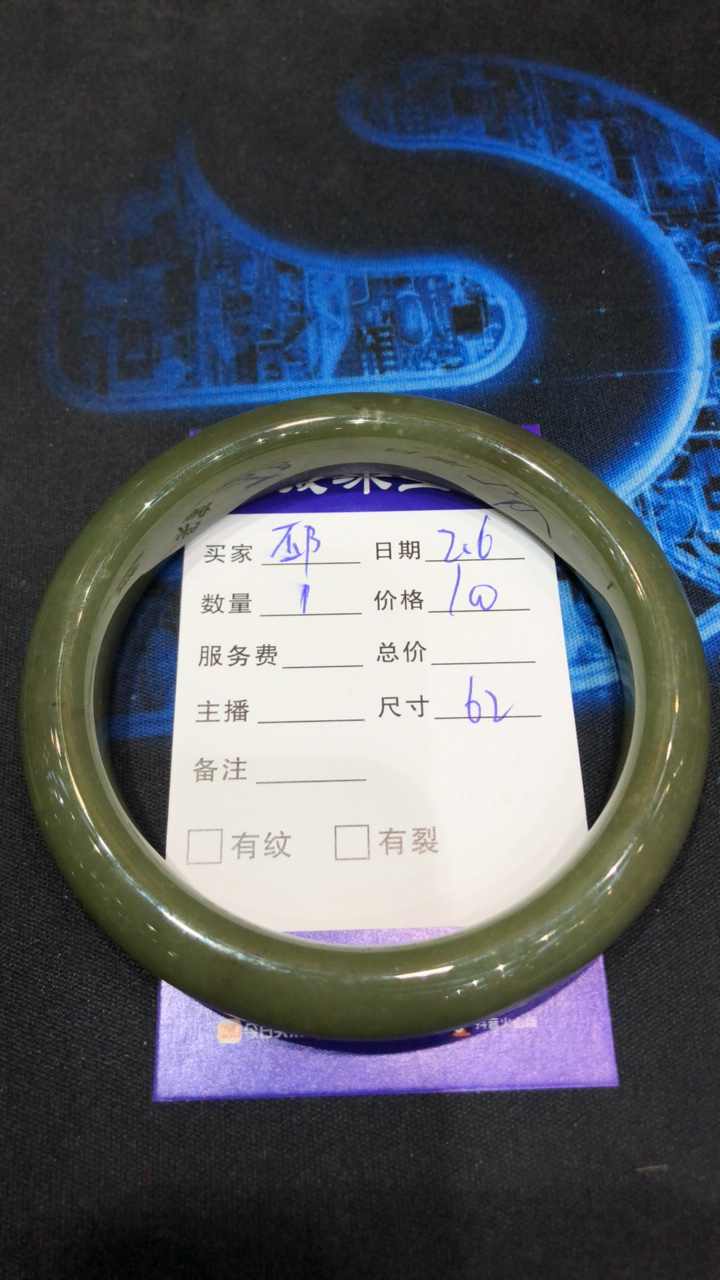 买家 邱 日期 2.6
数量 1 价格 100
服务费 总价
主播 尺寸 62
备注
有纹 有裂